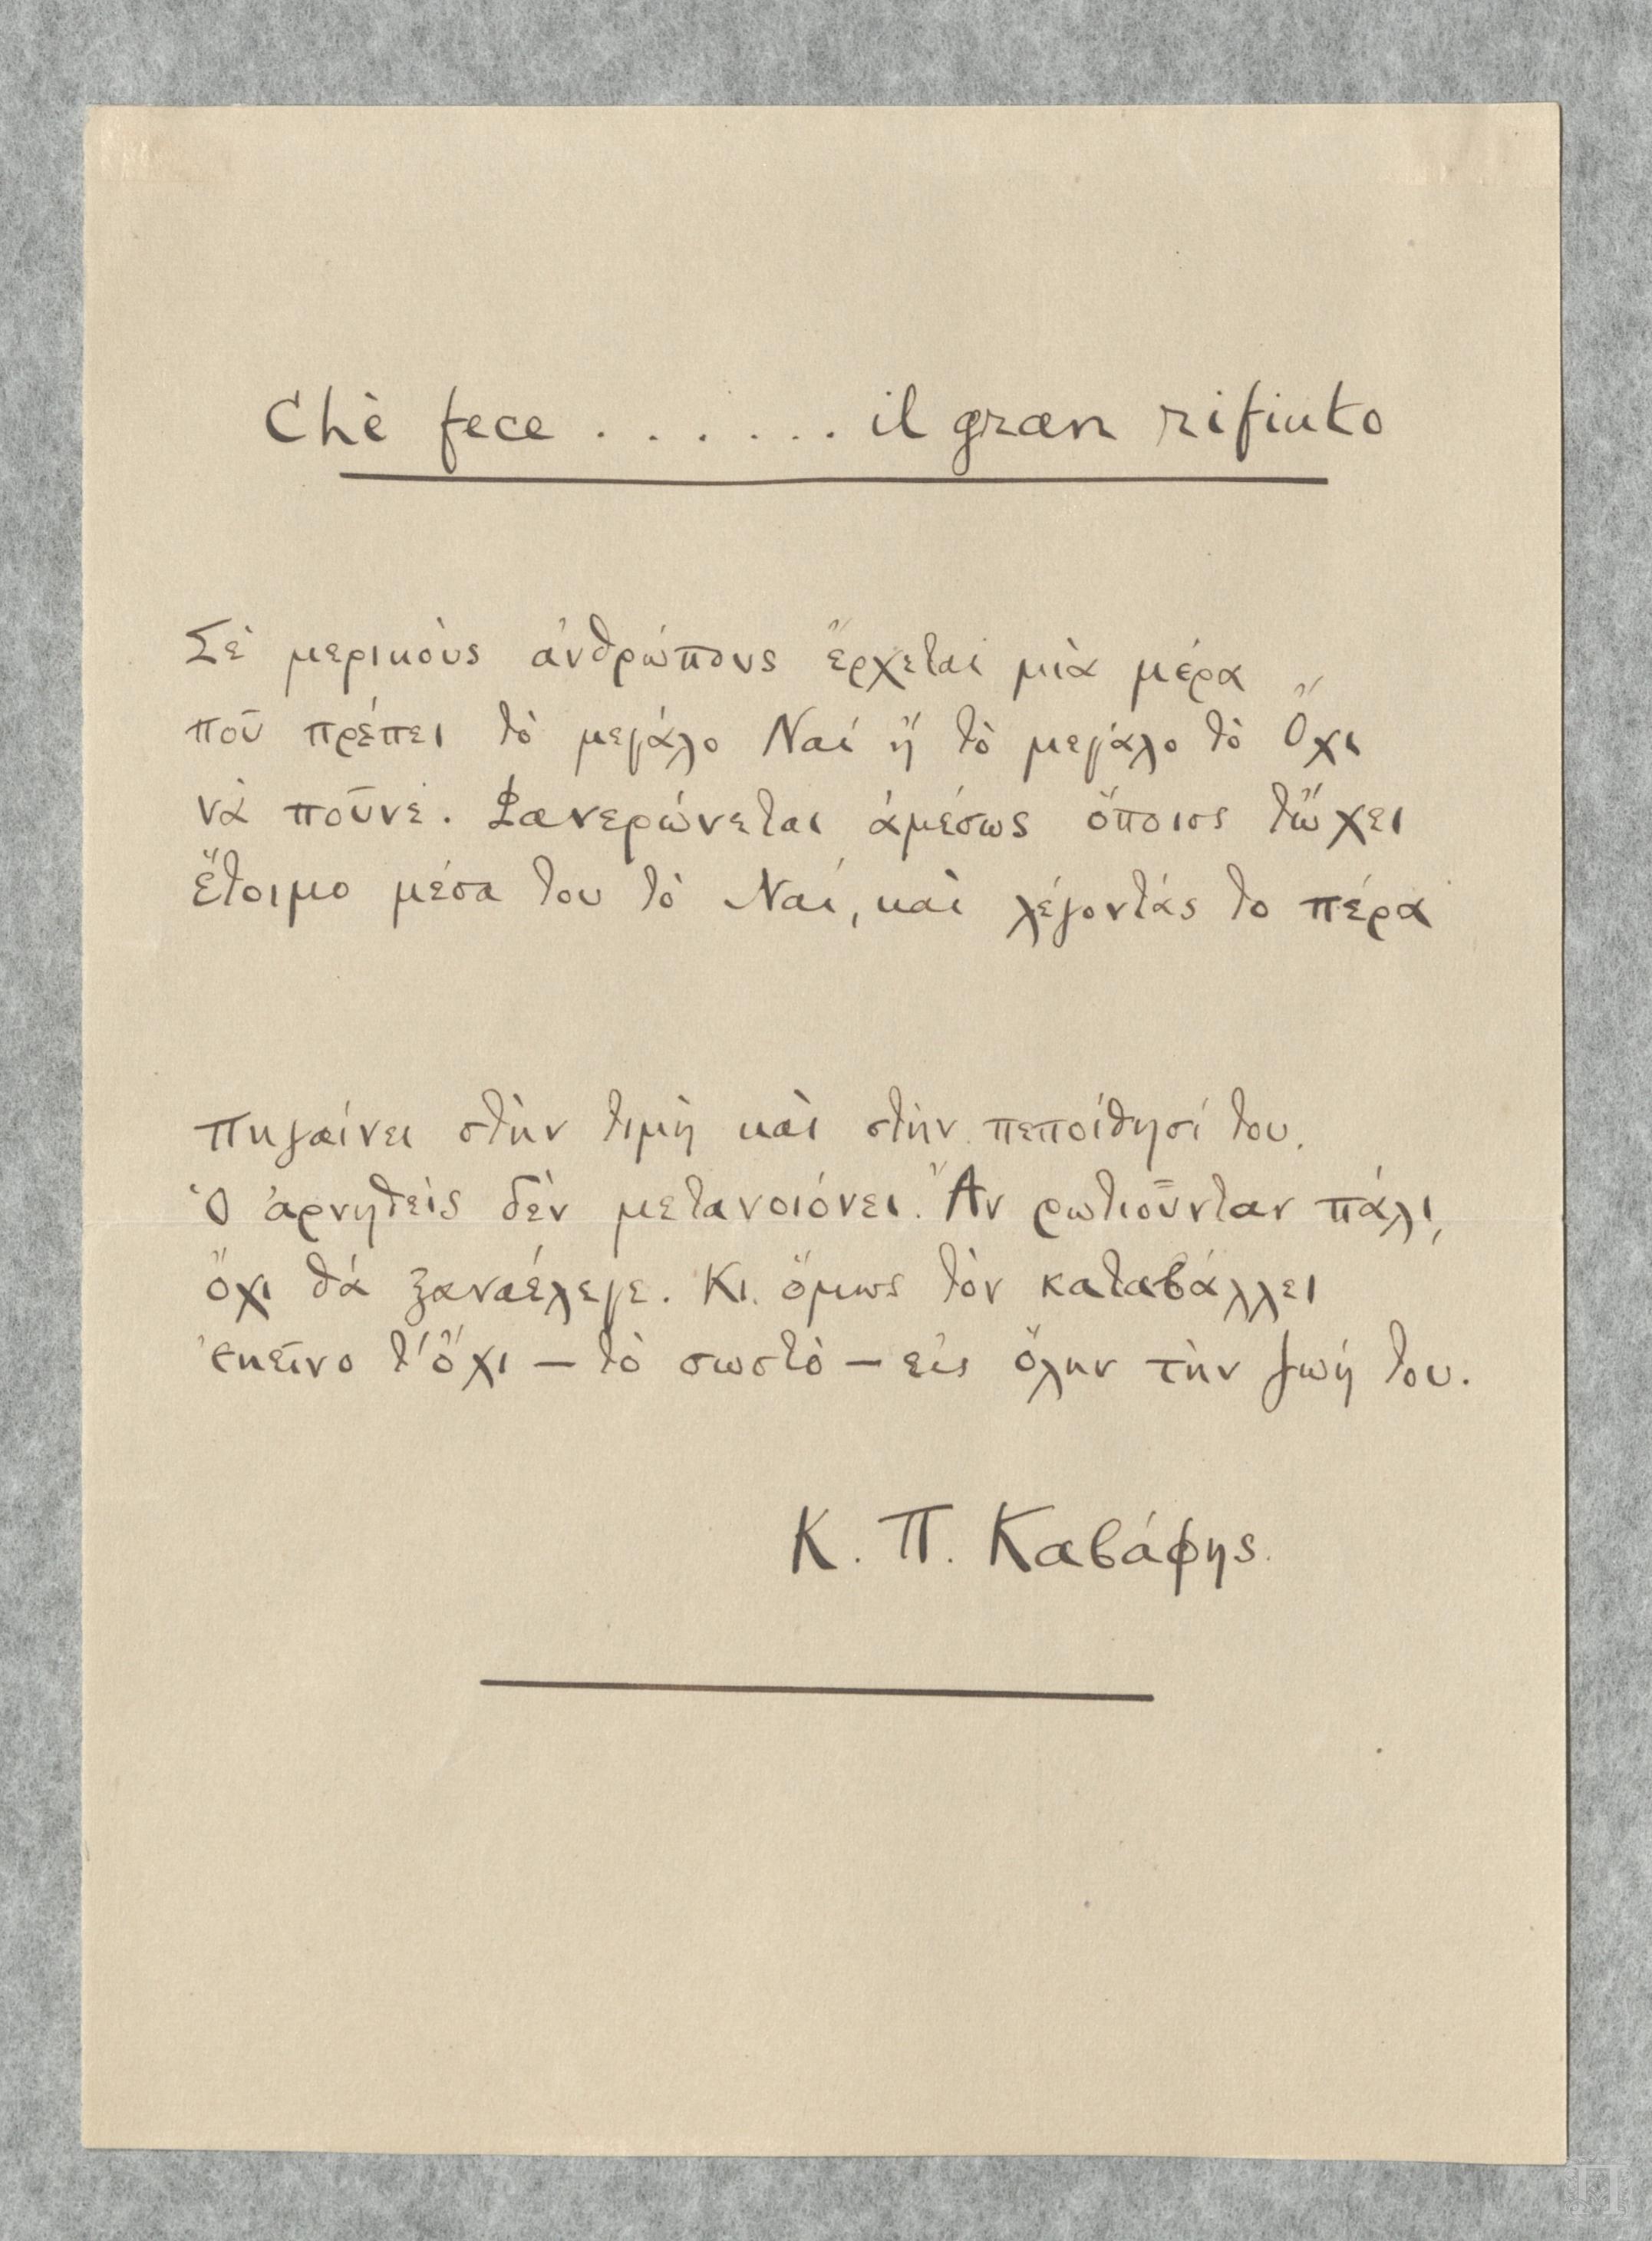 Chè fece . . . . . . . il gran rifiuto
Σὲ μερικοὺς ἀνθρώπους ἔρχεται μιὰ μέρα
ποῦ πρέπει τὸ μεγάλο Ναί ἢ τὸ μεγάλο τὸ Ὄχι
νὰ ποῦνε. Φανερώνεται ἀμέσως ὅποιος τὤχει
ἕτοιμο μέσα του τὸ Ναί, καὶ λέγοντάς το πέρα
πηγαίνει στὴν τιμὴ καὶ στὴν πεποίθησί του.
Ὁ ἀρνηθεὶς δὲν μετανοιόνει. Ἂν ρωτιοῦνταν πάλι,
ὄχι θὰ ξαναέλεγε. Κι ὅμως τὸν καταβάλλει
ἐκεῖνο τ' ὄχι — τὸ σωστὸ — εἰς ὅλην τὴν ζωή του.
Κ. Π. Καβάφης.
Π